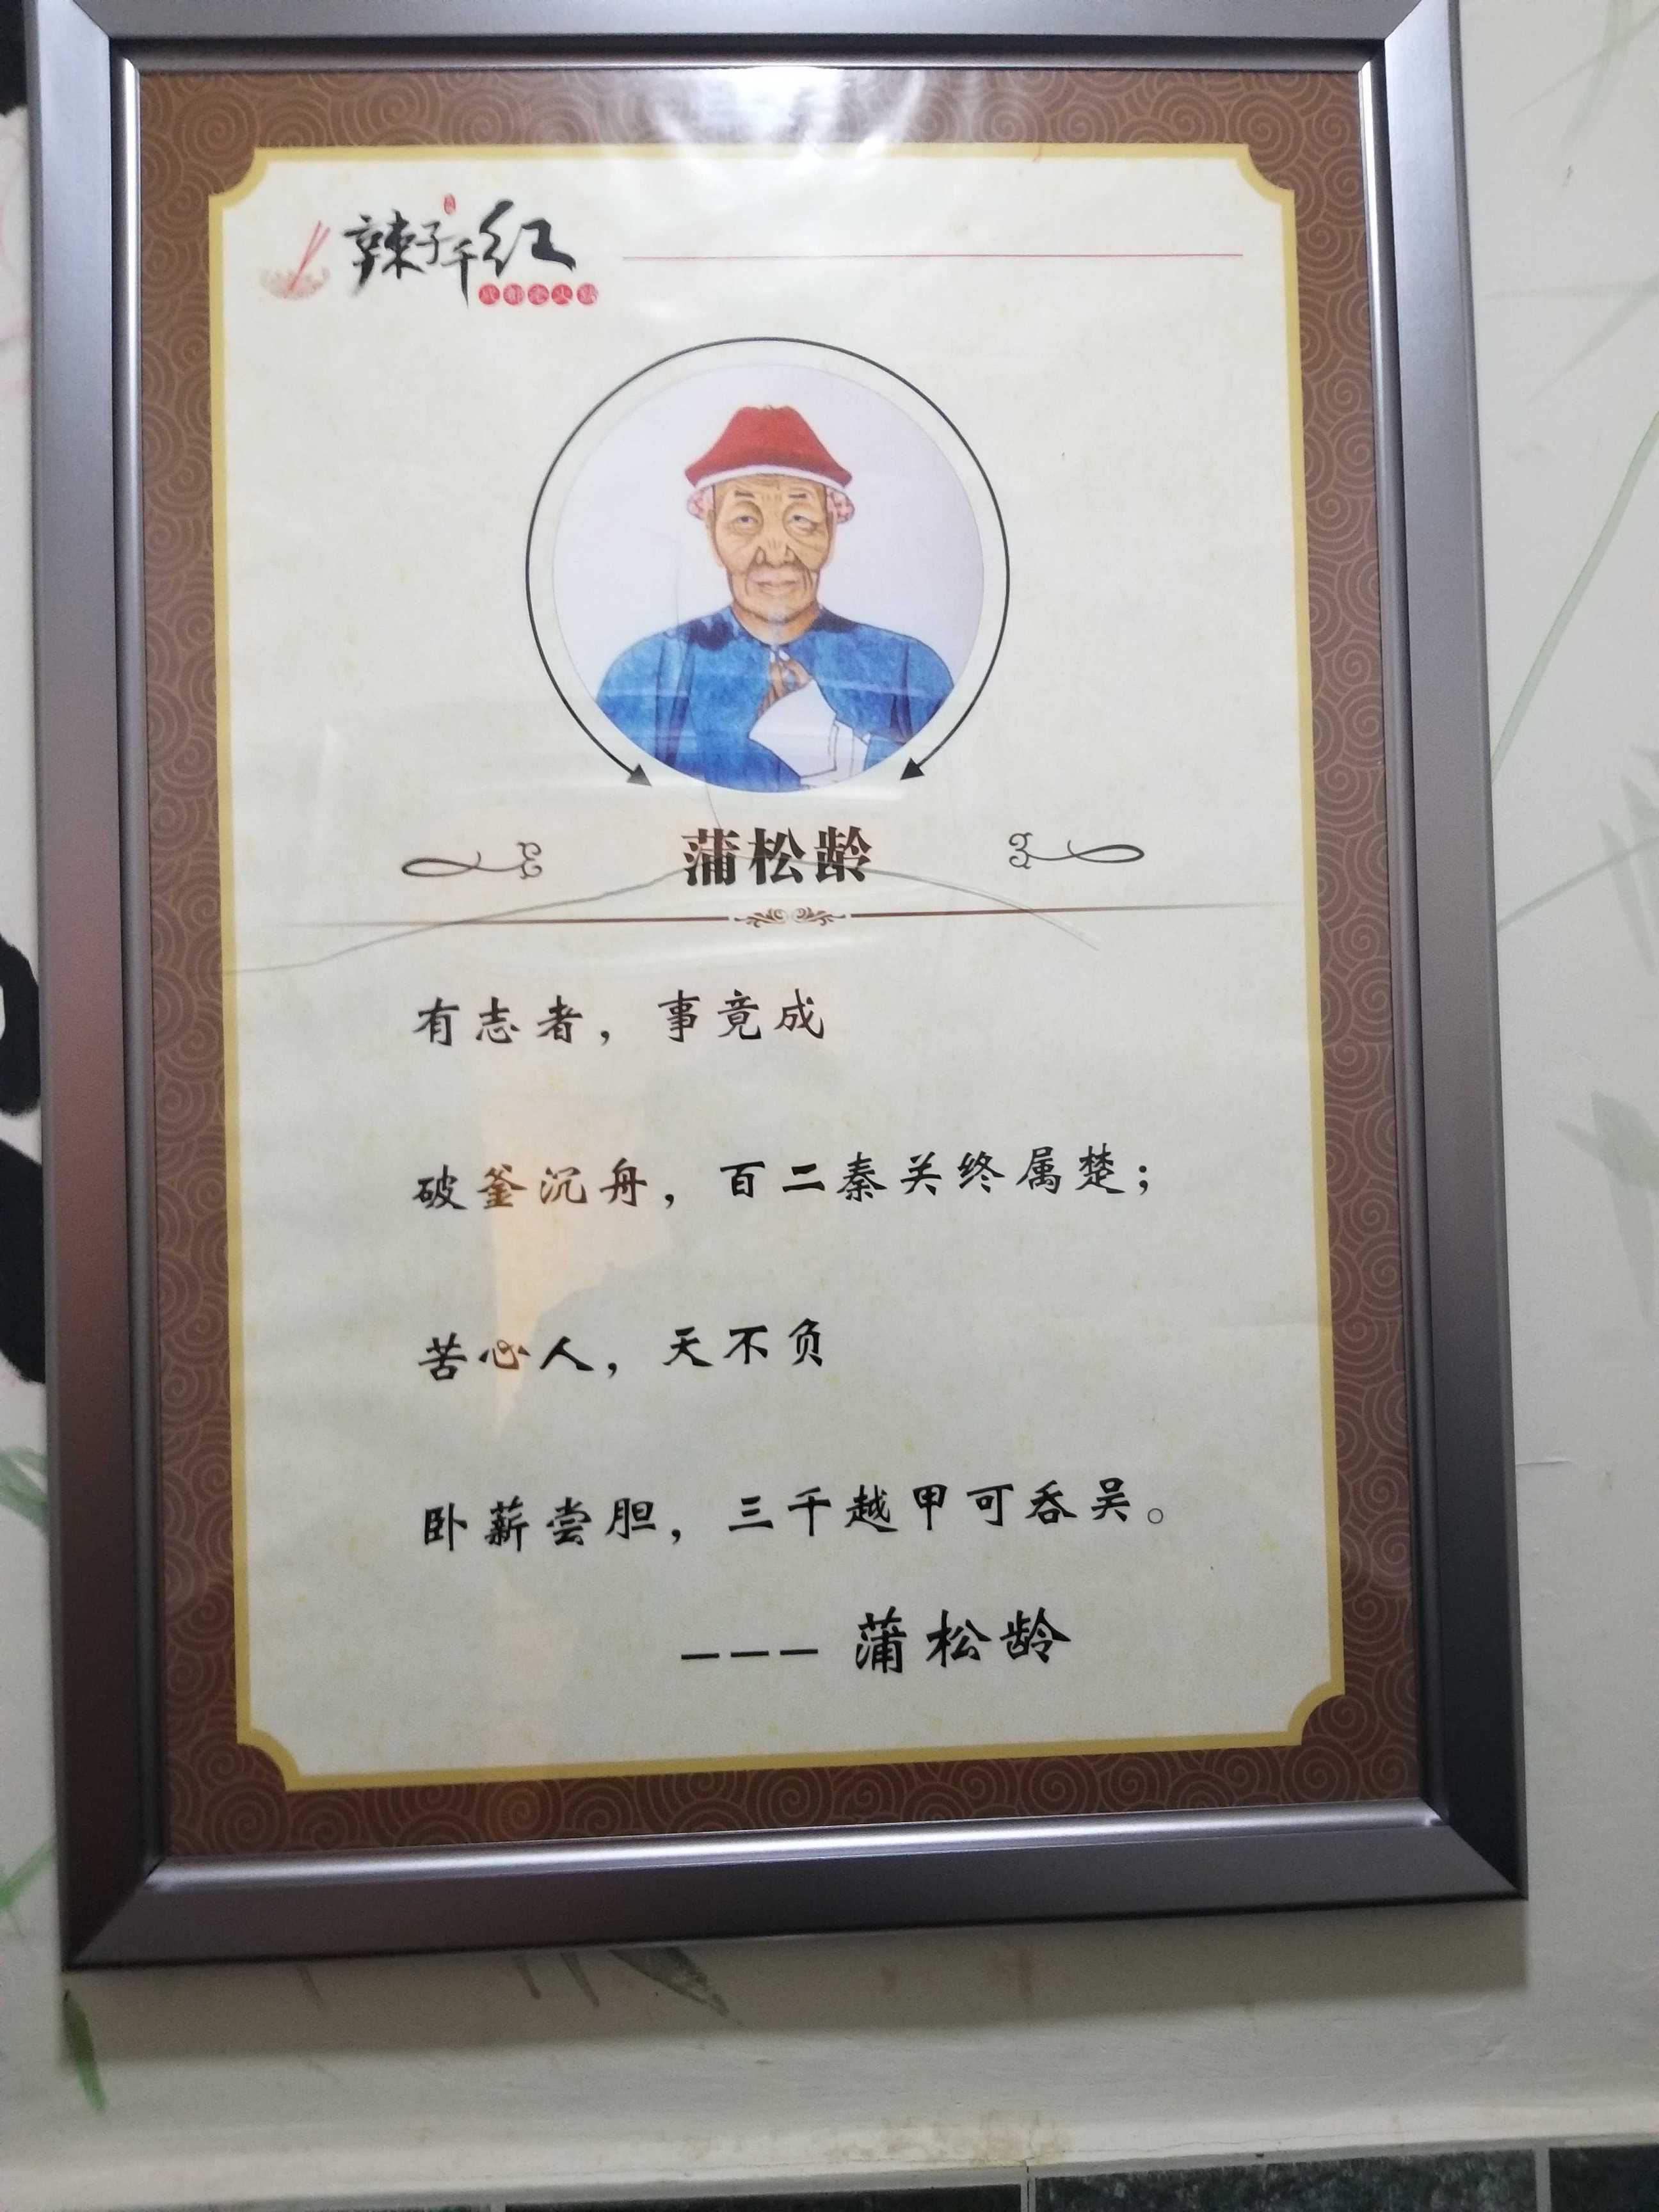 辣子千红
成都老火锅
蒲松龄
有志者，事竟成
破釜沉舟，百二秦关终属楚；
苦心人，天不负
卧薪尝胆，三千越甲可吞吴。
--- 蒲松龄